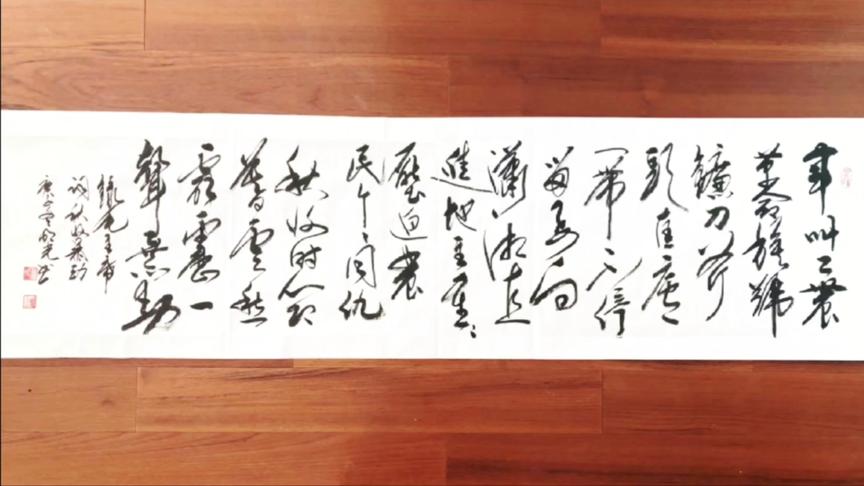 軍叫工農
革命旗號
鐮刀斧
頭匡廬
一帶不停
留要向
瀟湘直
進地主重、
壓迫農
民个、同仇
秋收时節
暮雲愁
霹靂一
聲暴動
錄毛主席
詞秋收暴動
庚子